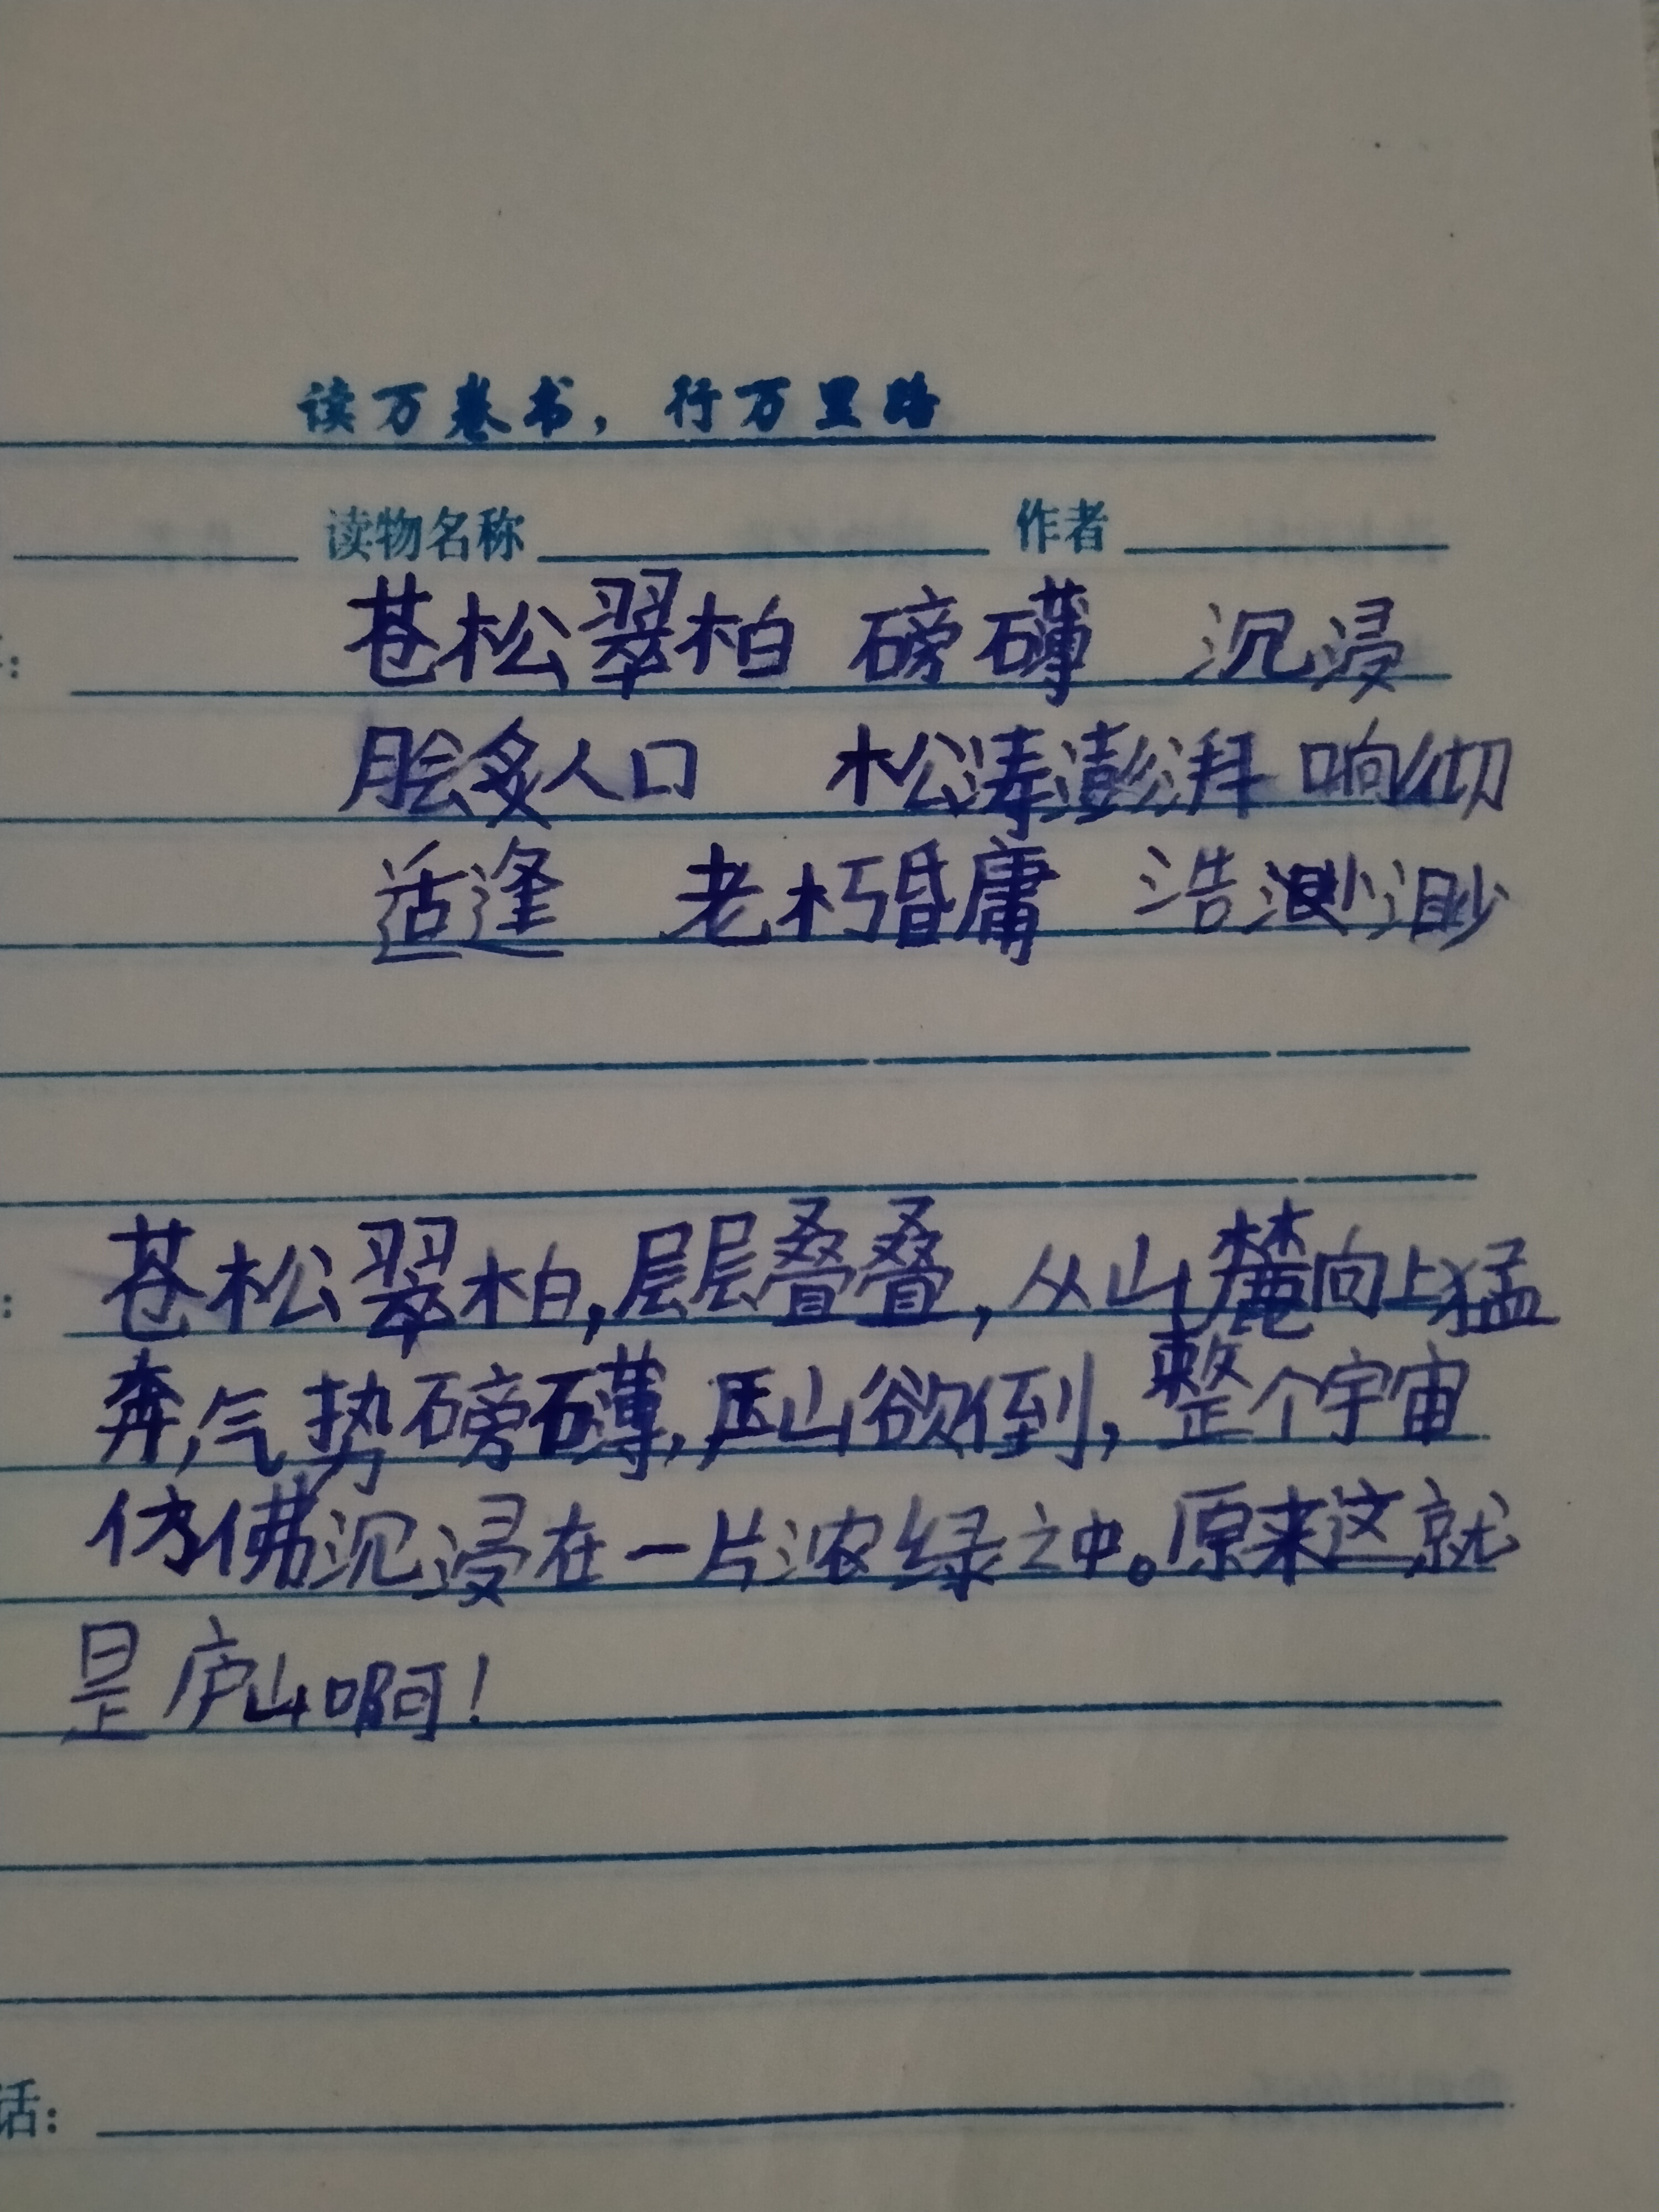 读万卷书，行万里路
读物名称 作者
苍松翠柏 磅礴 沉浸
脍炙人口 松涛澎湃 响彻
适逢 老朽昏庸 浩渺渺
苍松翠柏,层层叠叠,从山麓向上猛
奔,气势磅礴,压山欲倒,整个宇宙
仿佛沉浸在一片浓绿之中。原来这就
是庐山啊!
话: